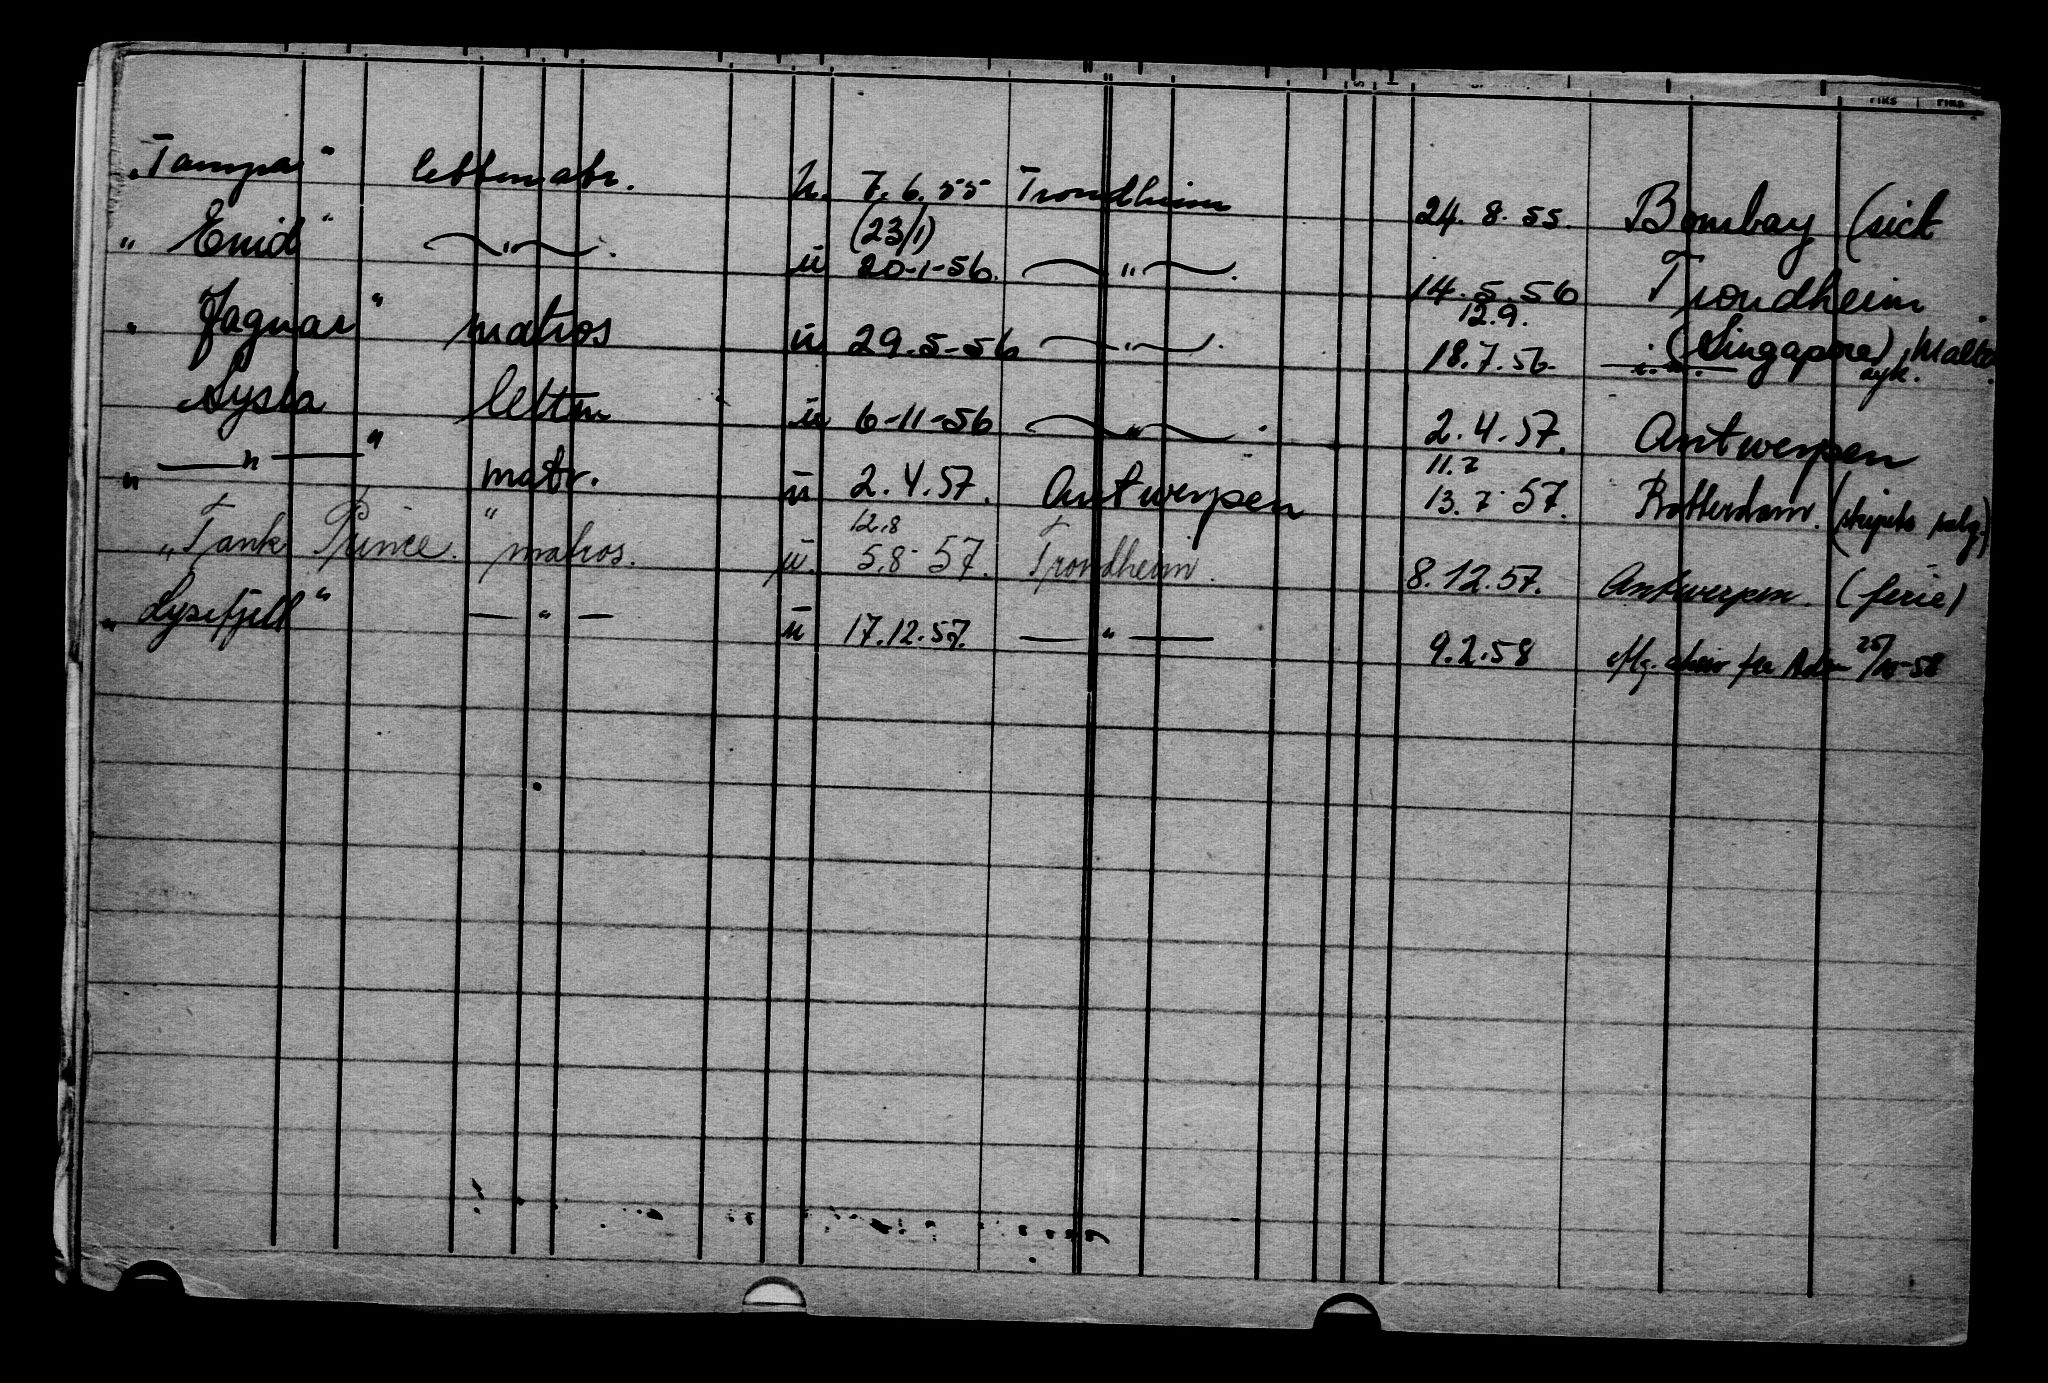 "Tampa" lettmatr. h. 7.6.55 Trondheim 24.8.55. Bombay (sick
(23/1)
"Enid" —"—. ū 20-1-56. —"—. 14.5.56 Trondheim.
12.9.
"Jaguar" matros ū 29.5-56 —"—. 18.7.56. (Singapore) Malta
syk.
Sysla lettm ū 6-11-56 —"—. 2.4.57. Antwerpen
11.7
"—"—" matr. ū 2.4.57. Antwerpen 13.7 57. Rotterdam. (skipets salg.)
12.8
"Tank Prince." matros. ū. 5.8-57. Trondheim. 8.12.57. Antwerpen. (ferie)
"Lysefjell" —"— ū 17.12.57. —"— 9.2.58 fra Aden 25/10-58
RIKS RIKS